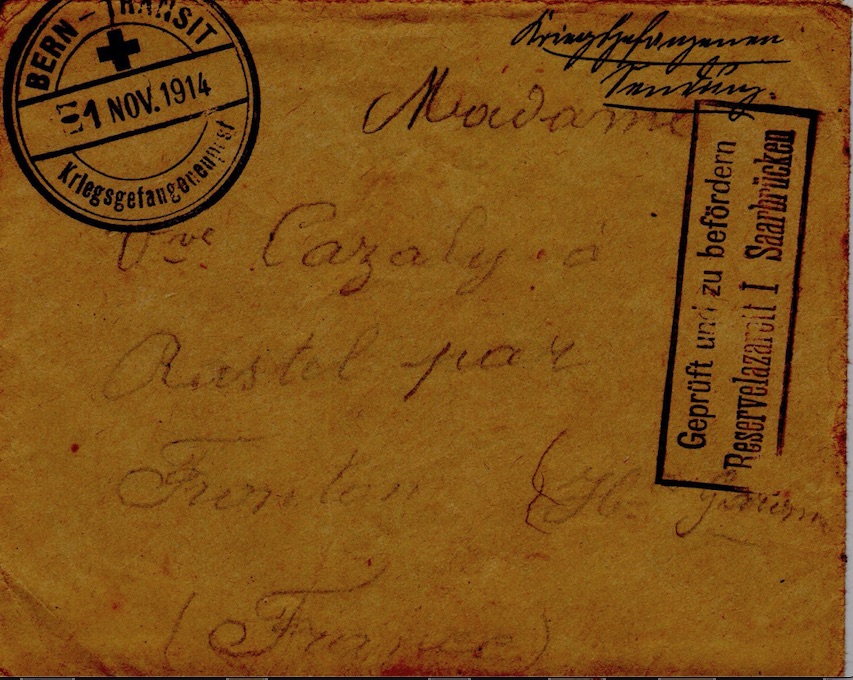 BERN - TRANSIT
1 NOV. 1914
Kriegsgefangenenpost
Kriegsgefangenen
Sendung.
Madame
Vve Cazaly à
Rastel par
Fronton (Hte Garonne
(France)
Geprüft und zu befördern
Reservelazarett I Saarbrücken